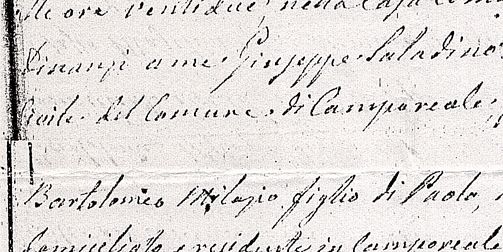 lle ore ventidue, nella Casa Com
Dinanzi a me Giuseppe Saladino
Civile del Comune di Camporeale,
Bartolomeo Milazzo figlio di Paolo,
domiciliato e residente in Camporeale